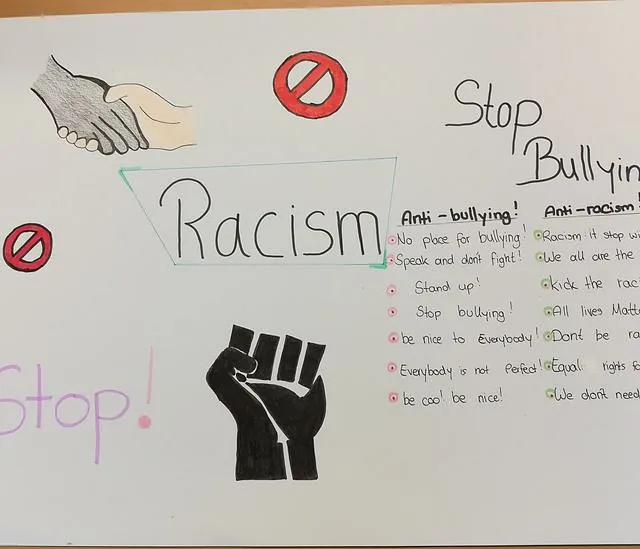 Racism
Stop!
Stop
Bullyin
Anti-bullying!
No place for bullying!
Speak and don't fight!
Stand up!
Stop bullying!
be nice to Everybody!
Everybody is not Perfect!
be coo! be nice!
Anti-racism!
Racism: it stop wi
We all are the
kick the rac
All lives Matte
Dont be ra
Equal rights fo
We don't need